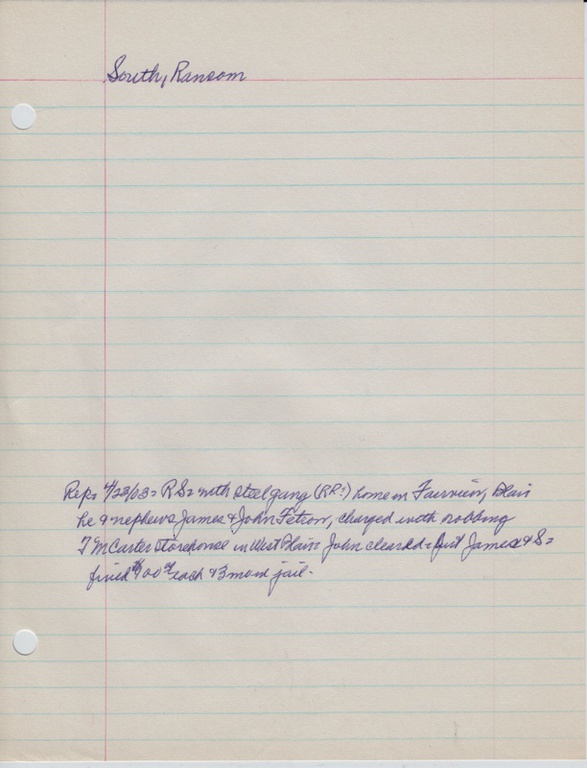 South, Ransom
Rep: 4/23/03 = R S = with steel gang (RR?) home in Fairview, Blair
he & nephews James & John Fetrow, charged with robbing
T M Carter storehouse in West Plain = John cleared = but James & S =
fined $100 each & 3 mos in jail.